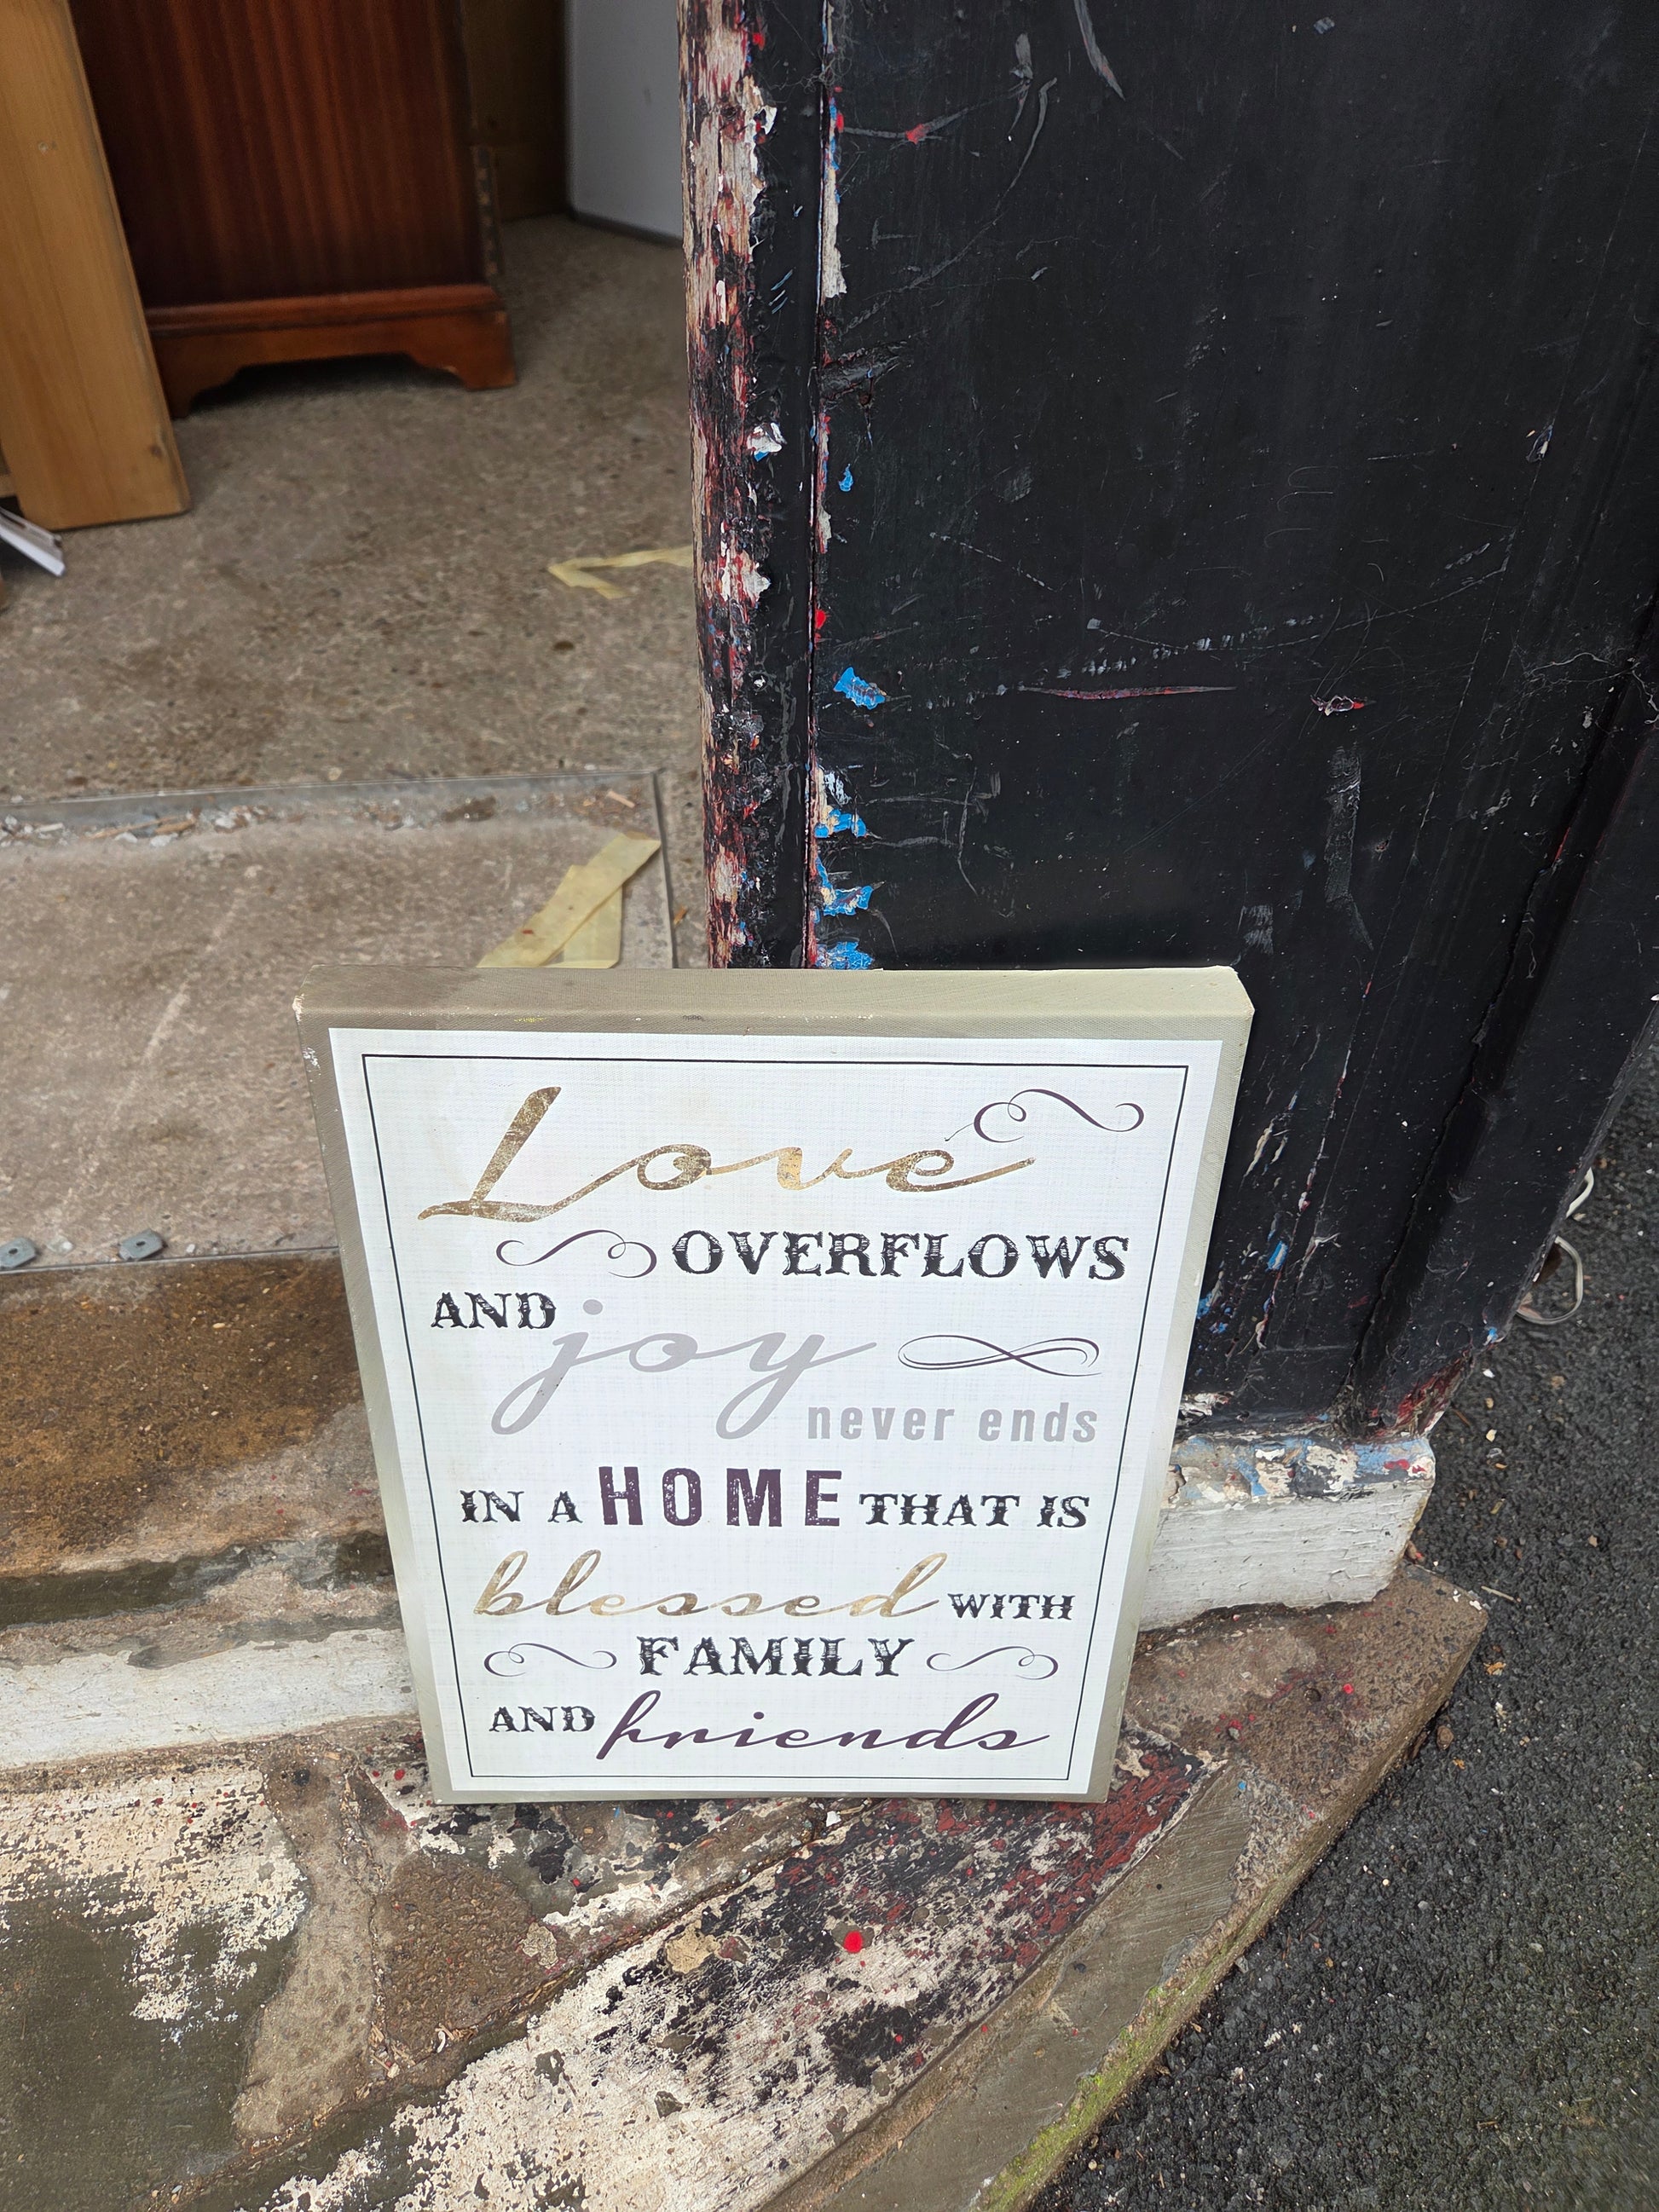 Love
OVERFLOWS
AND joy
never ends
IN A HOME THAT IS
blessed WITH
FAMILY
AND friends